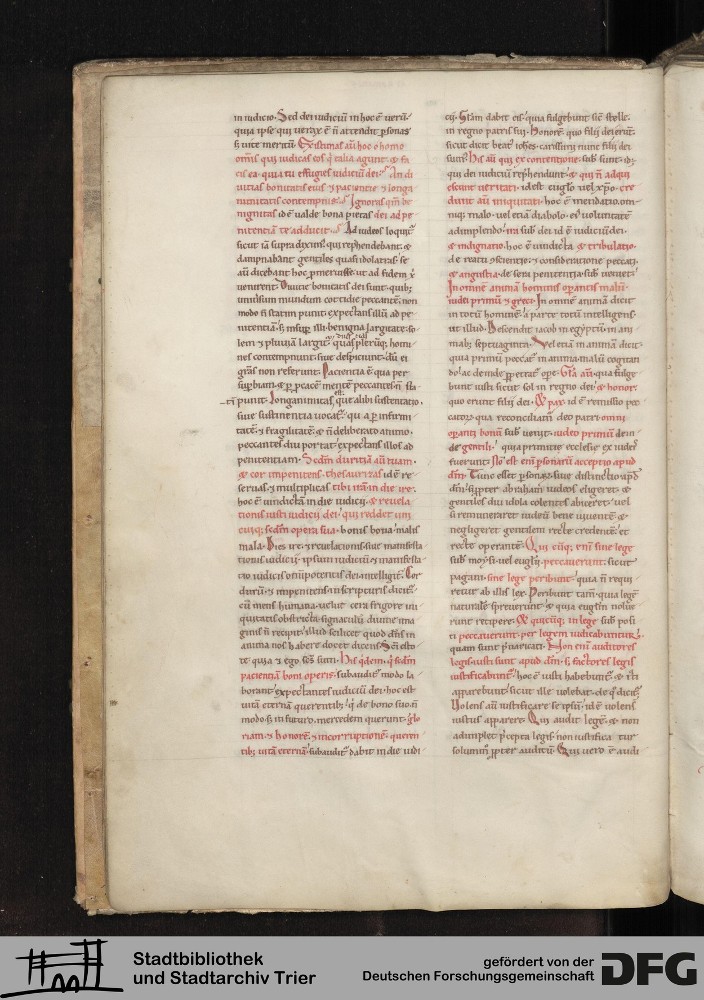 in iudicio. Sed dei iudiciū in hoc ē verū.
quia ipse qui verax ē ñ attendit psonas
ſ; vite meritū. Existimas aū hoc o homo
omīs qui iudicas eos q̇ talia agunt. & fa
cis ea. quia tu effugies iudiciū dei? An di
uitias bonitatis eius & pacientie & longa
nimitatis contempnis? Ignoras qm̄ be
nignitas id ē valde bona pietas dei ad pe
nitenciā te adducit? Ad iudeos loquit᷑
sicut iā supra diximꝰ qui rephendebant. &
dampnabant gentiles quasi idolatras. se
aū dicebant hoc pmeruisse. ut ad fidem x
venirent. Diuitie bonitatis dei sunt. quibꝫ
uniusum mundum cottidie peccantē. non
modo ñ statim punit expectans illū ad pe
nitenciā. ſ; insup illi benigna largitate. so
lem & pluuiā largit᷑. quas plerūq; homi
nes contempnunt. siue despiciunt. dū ei
gr̄as non referunt. Paciencia ē qua per
supbiam. & p pcacē mentē peccantes. ñ sta
punit. Longanimitas. que alibi sustentatio.
siue sustinentia uocat᷑. qu a p infirmi
tatē. & fragilitatē. & ñ deliberato animo.
peccantes diu portat expectans illos ad
penitentiam. Scdm duritiā aū tuam.
& cor impenitens. thesaurizas id ē re
seruas. & multiplicas tibi irā in die ire.
hoc ē uindictā in die iudicij. & reuela
tionis iusti iudicij dei. qui reddet uni
cuiq; scdm opera sua. bonis bona. malis
mala. Dies ire. & reuelationis siue manifesta
tionis iudicij. ipsum iudiciū & manifesta
tio iudicis omīpotentis dei intelligit᷑. Cor
durū & impenitens in scripturis dicit᷑.
cū mens humana. uelut cera frigore ini
quitatis obstricta. signaculū diuine ima
ginis ñ recipit. illud scilicet quod dn̄s in
anima nos habere docet dicens. Sc̄i esto
te. quia & ego sc̄s sum. His qdem q̇ scdm
pacientiā boni operis. subaudit᷑ modo la
borant expectantes iudiciū dei. hoc est
vitā eternā querentibꝫ. q̇ de bono suo ñ
modo. ſ; in futuro. mercedem querunt. glo
riam. & honorē. & incorruptionē. queren
tibꝫ vitā eternā. subaudit᷑ dabit in die iudi
cij. Gl̄am dabit eis. quia fulgebunt sic̄ stelle.
in regno patris sui. Honorē. quo filij dei erūt.
sicut dicit beatꝰ ioh̄es. carissimi nunc filij dei
sumꝰ. His aū qui ex contentione.
qui dei iudiciū rephendunt. & qui ñ adqui
escunt ueritati. id est euglo vel xp̄o. cre
dunt aū iniquitati. hoc ē mendatio. om
niq; malo. vel etiā diabolo. eiꝰ voluntatē
adimplendo. ira dei id ē iudiciū dei.
& indignatio. hoc ē uindicta. & tribulatio.
de reatu conscientie. & consideratione peccati.
& angustia. de sera penitentia.
In omnē animā hominis opantis malū.
iudei primū & greci. In omnē animā dicit
in totū hominē. a parte totū intelligens.
ut illud. Descendit iacob in egyptū in ani
mabꝫ septuaginta. Vel etiā in animā dicit.
quia primū peccat᷑ in anima. malū cogitan
do. ac deinde ppetrat᷑ ope. Gl̄a aū. qua fulge
bunt iusti sicut sol in regno dei. & honor.
quo erunt filij dei. & pax. id ē remissio pec
catoꝝ. qua reconciliam̄ deo patri. omni
opanti bonū. iudeo primū de in
de gentili. quia primitie ecclesie ex iudeis
fuerunt. Nō est enī psonarū acceptio apud
dm̄. Tunc esset psonaꝝ siue distinctio apd
dm̄. si ppter abraham iudeos eligeret. &
gentiles diu idola colentes abiceret. vel
si remuneraret iudeū bene uiuentē. &
negligeret gentilem recte credentē. et
recte operantē. Qui cūq; enī sine lege
sub moysi. vel euglij. peccauerunt. sicut
pagani. sine lege peribunt. quia ñ requi
retur ab illis lex. Peribunt tam. quia legē
naturalē spreuerunt. & quia euglm nolue
runt recipere. & quicūq; in lege sub posi
ti peccauerunt. per legem iudicabuntur.
quam sunt puaricati. Non enī auditores
legis iusti sunt apud dm̄. ſ; factores legis
iustificabunt᷑. hoc ē iusti habebunt᷑. & iusti
apparebunt. sicut ille volebat. de q̇ dicit᷑.
Volens aū iustificare se ipsū. id ē uolens
iustus apparere. Qui audit legē. & non
adimplet pcepta legis. non iustifica tur
solummō ppter auditū. Qui uero ē audi
Stadtbibliothek
und Stadtarchiv Trier
gefördert von der
Deutschen Forschungsgemeinschaft
DFG